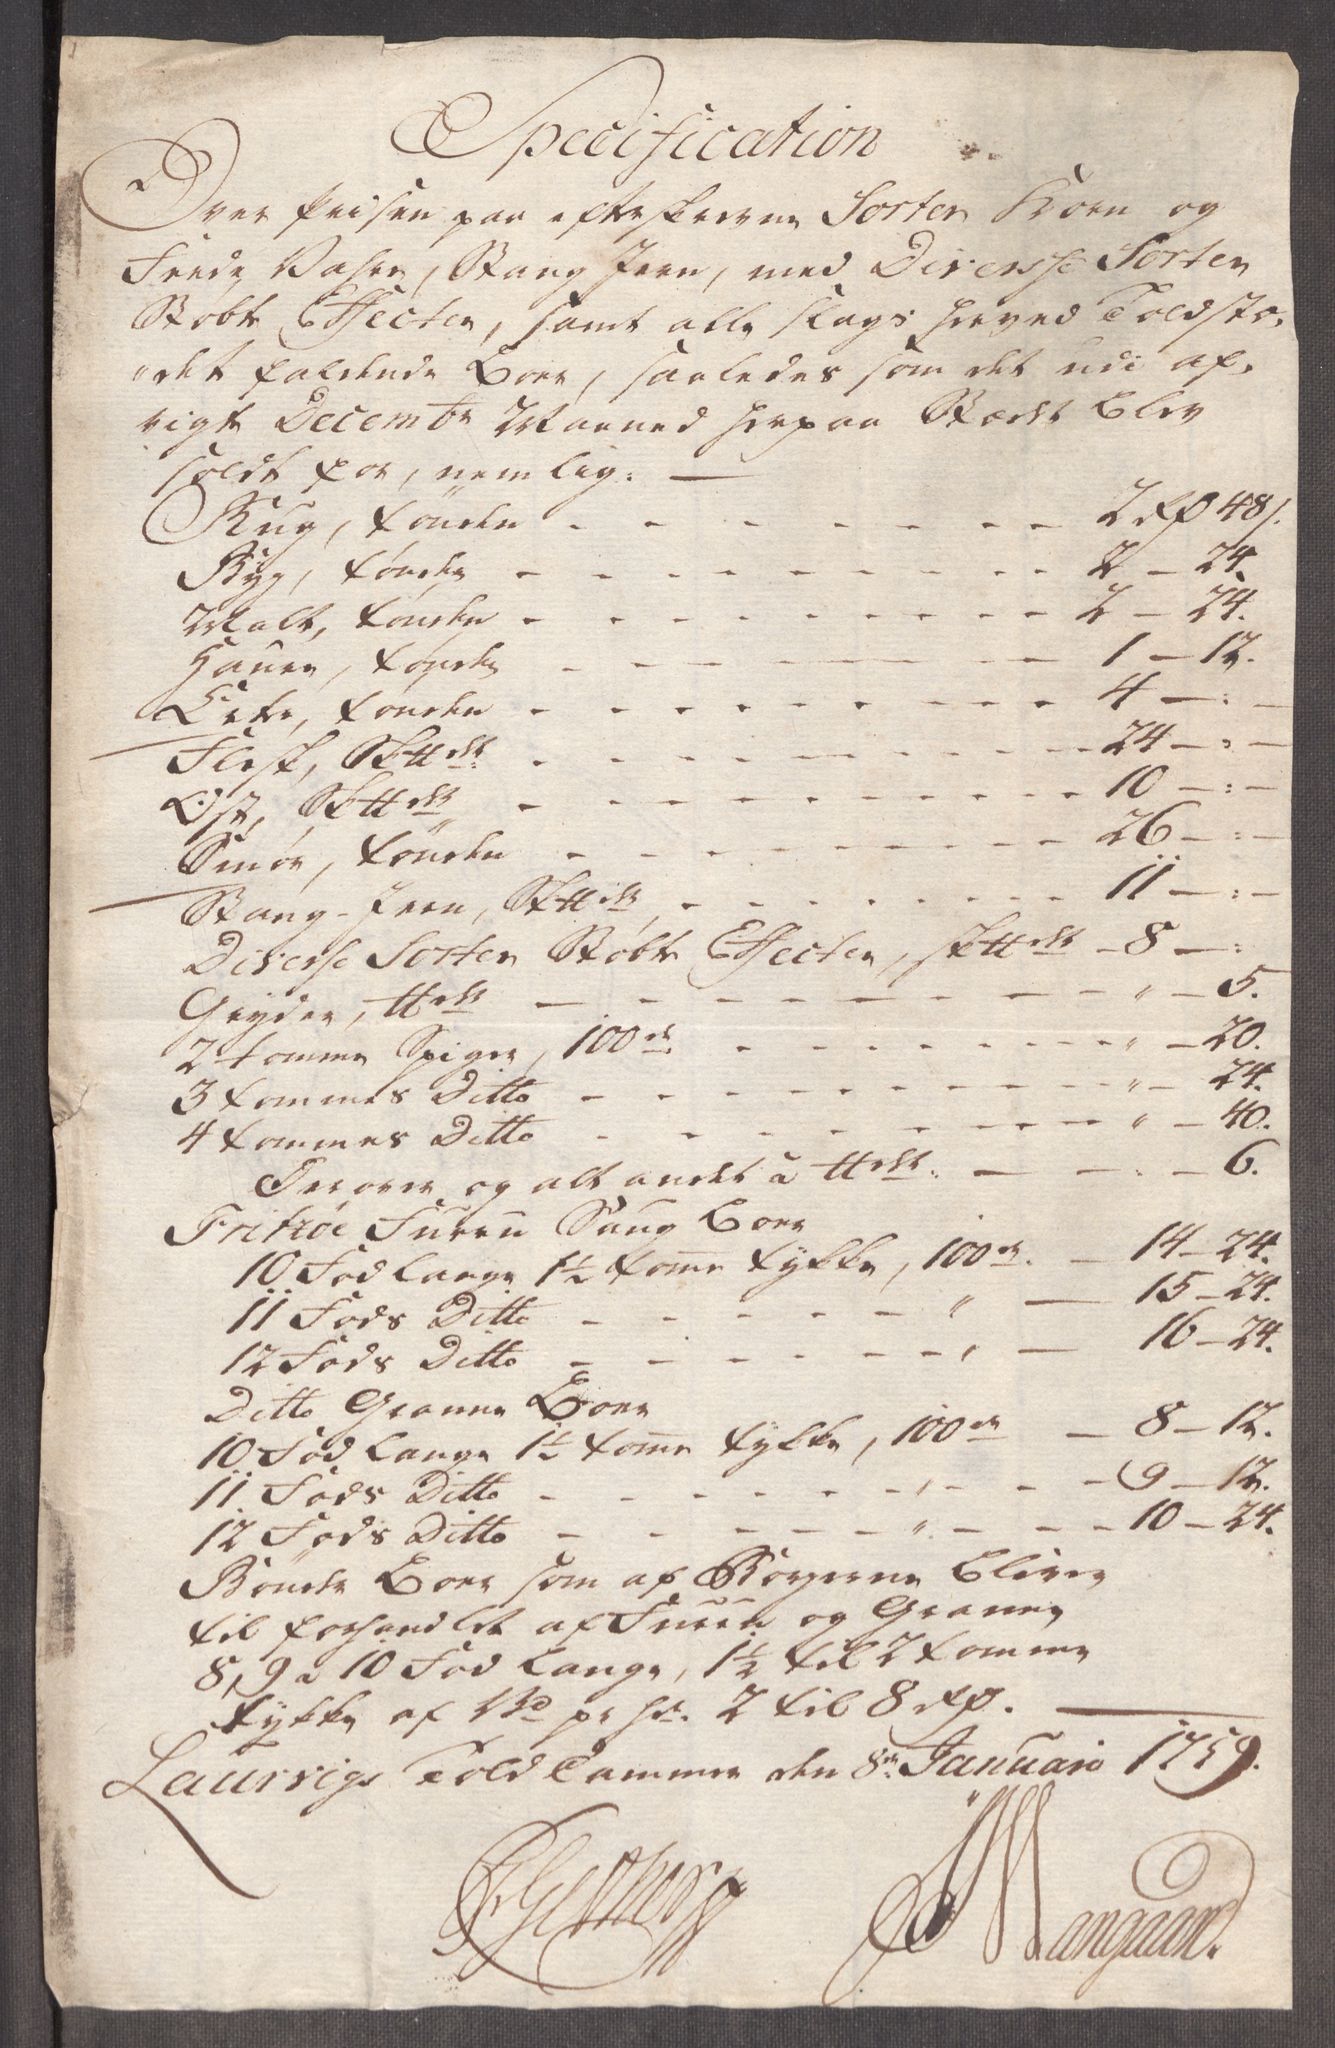 Specification
Over Prisen paa efterskrevne Sorter Korn og
Feede Vahre, Stang Jern, med Diversse Sorter
Støbte Effecter, samt alle slags herved Toldste-
det faldende Bord, saaledes som det udi af-
vigte Decembr Maaned herpaa Stædet blev
soldt for, nemlig: —
Rug, Tönden - - - - - - - 2 rdr 48 s.
Byg, Tönden - - - - - - - 2 - 24.
Malt, Tönden - - - - - - - 2 - 24.
Haure, Tönden - - - - - - - 1 - 12.
Erter, Tönden - - - - - - - 4 - : -
Flesk, Sk℔det - - - - - - - 24 - : -
Ost, Sk℔det - - - - - - - 10 - : -
Smør, Tönden - - - - - - - 26 - : -
Stang-Jern, Sk℔det - - - - - - - 11 - : -
Diverse Sorter Støbte Effecter, Sk℔det - 8 - :
Gryder, ℔det - - - - - - - " - 5.
2 Tomme Spiger, 100de - - - - - - - " - 20.
3 Tommes Ditto - - - - - - - " - 24.
4 Tommes Ditto - - - - - - - " - 40.
og alt andet a ℔det. - - : - 6.
Fritzöe Furru Saug Bord
10 Fod Lange 1½ Tome tykke, 100de. - 14 - 24.
11 Fods Ditto - - - - - " - 15 - 24.
12 Fods Ditto - - - - - " - 16 - 24.
Ditto Granne Bord
10 Fod Lange 1½ Tome tykke, 100de - 8 - 12.
11 Fods Ditto - - - - - " - - - 9 - 12.
12 Fods Ditto - - - - - " - - - 10 - 24.
Bönder Bord som af Borgerne bliver
til forhandlet af Furru og Granne
8, 9 a 10 Fod Lange, 1½ til 2 Tomme
tykke af pr 2 til 8 rdr. —
Laurvigs Told Cammer den 8de Januari 1759.
Mangaard.